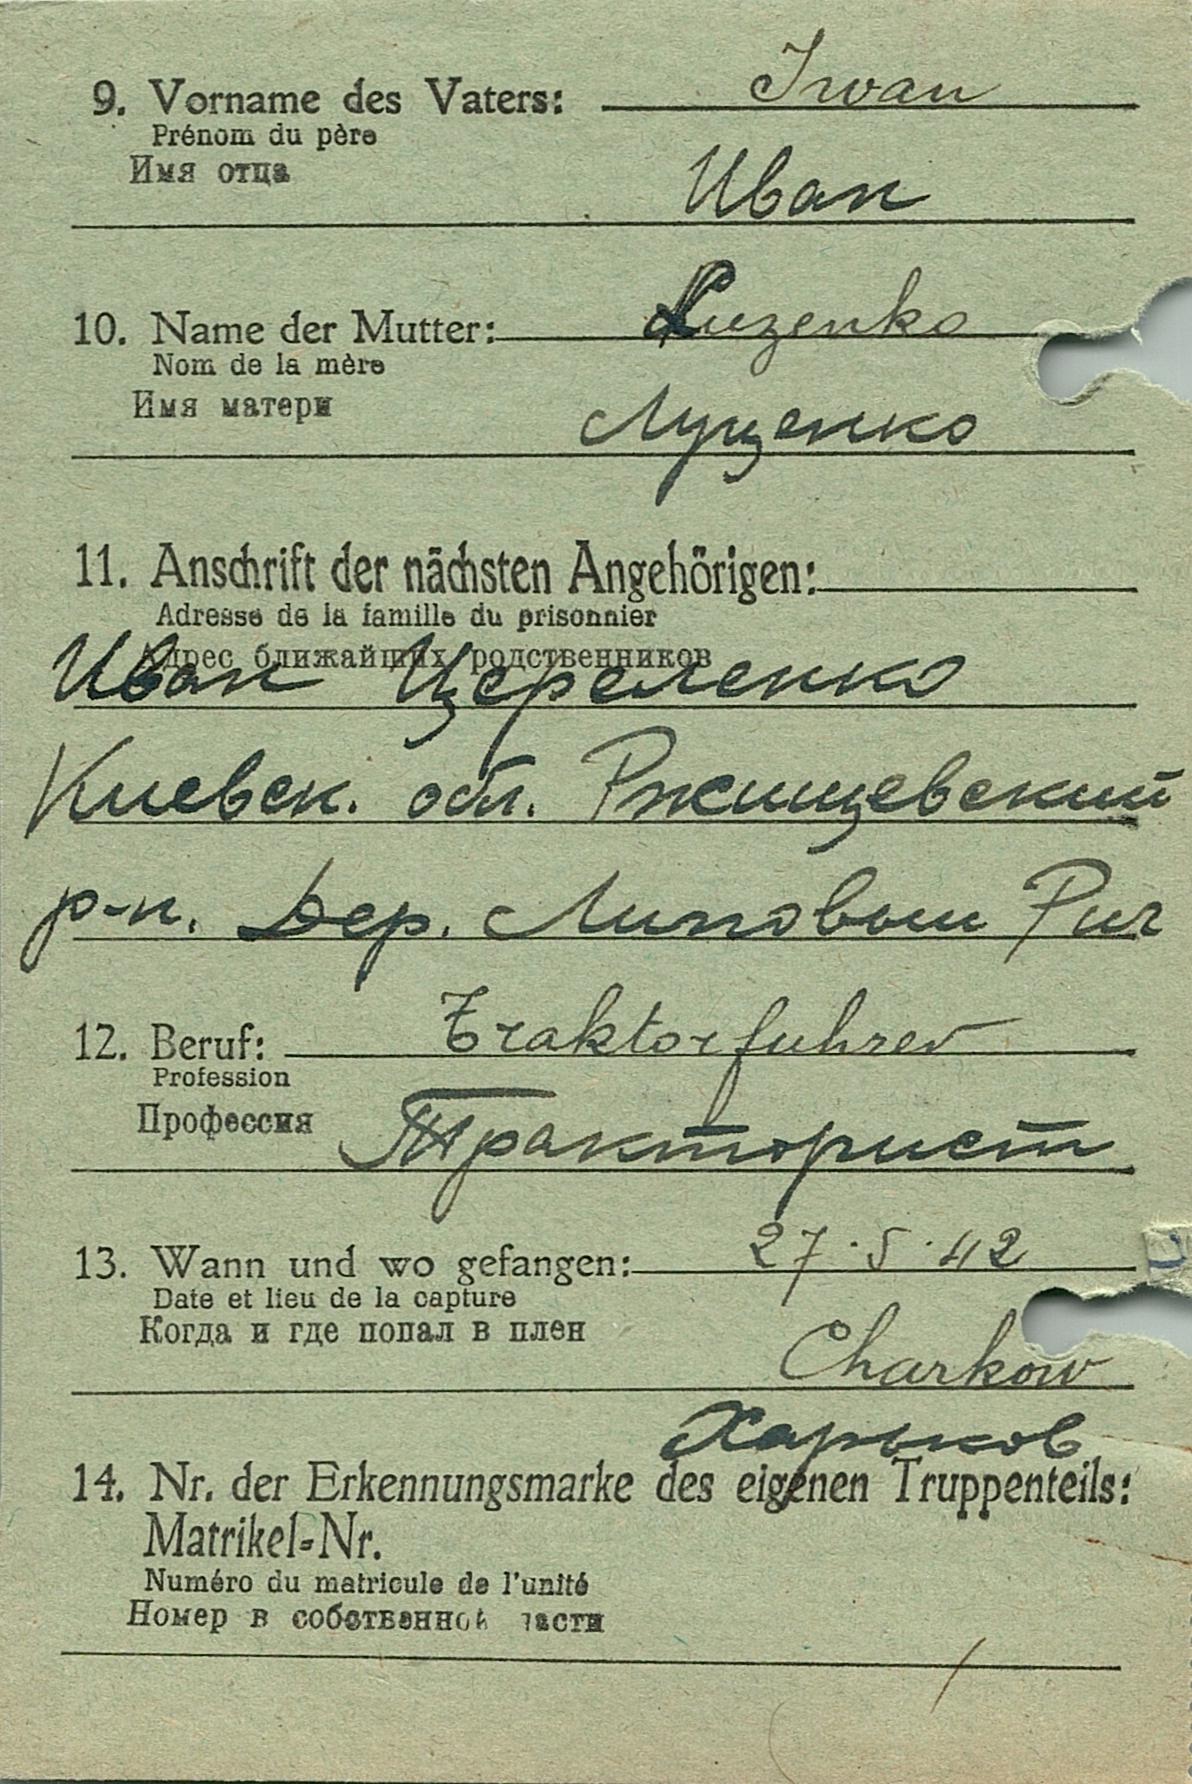 9. Vorname des Vaters: Iwan
Prénom du père
Имя отца
Иван
10. Name der Mutter: Luzenko
Nom de la mère
Имя матери
Луценко
11. Anschrift der nächsten Angehörigen:
Adresse de la famille du prisonnier
Адрес ближайших родственников
Иван
Киевск. обл. Ржищевский
р-н. Дер. Липовый Риг
12. Beruf: Traktorfuhrer
Profession
Профессия
Тракторист
13. Wann und wo gefangen: 27.5.42
Date et lieu de la capture
Когда и где попал в плен
Charkow
Харьков
14. Nr. der Erkennungsmarke des eigenen Truppenteils:
Matrikel-Nr.
Numéro du matricule de l'unité
Номер в собственной части
/